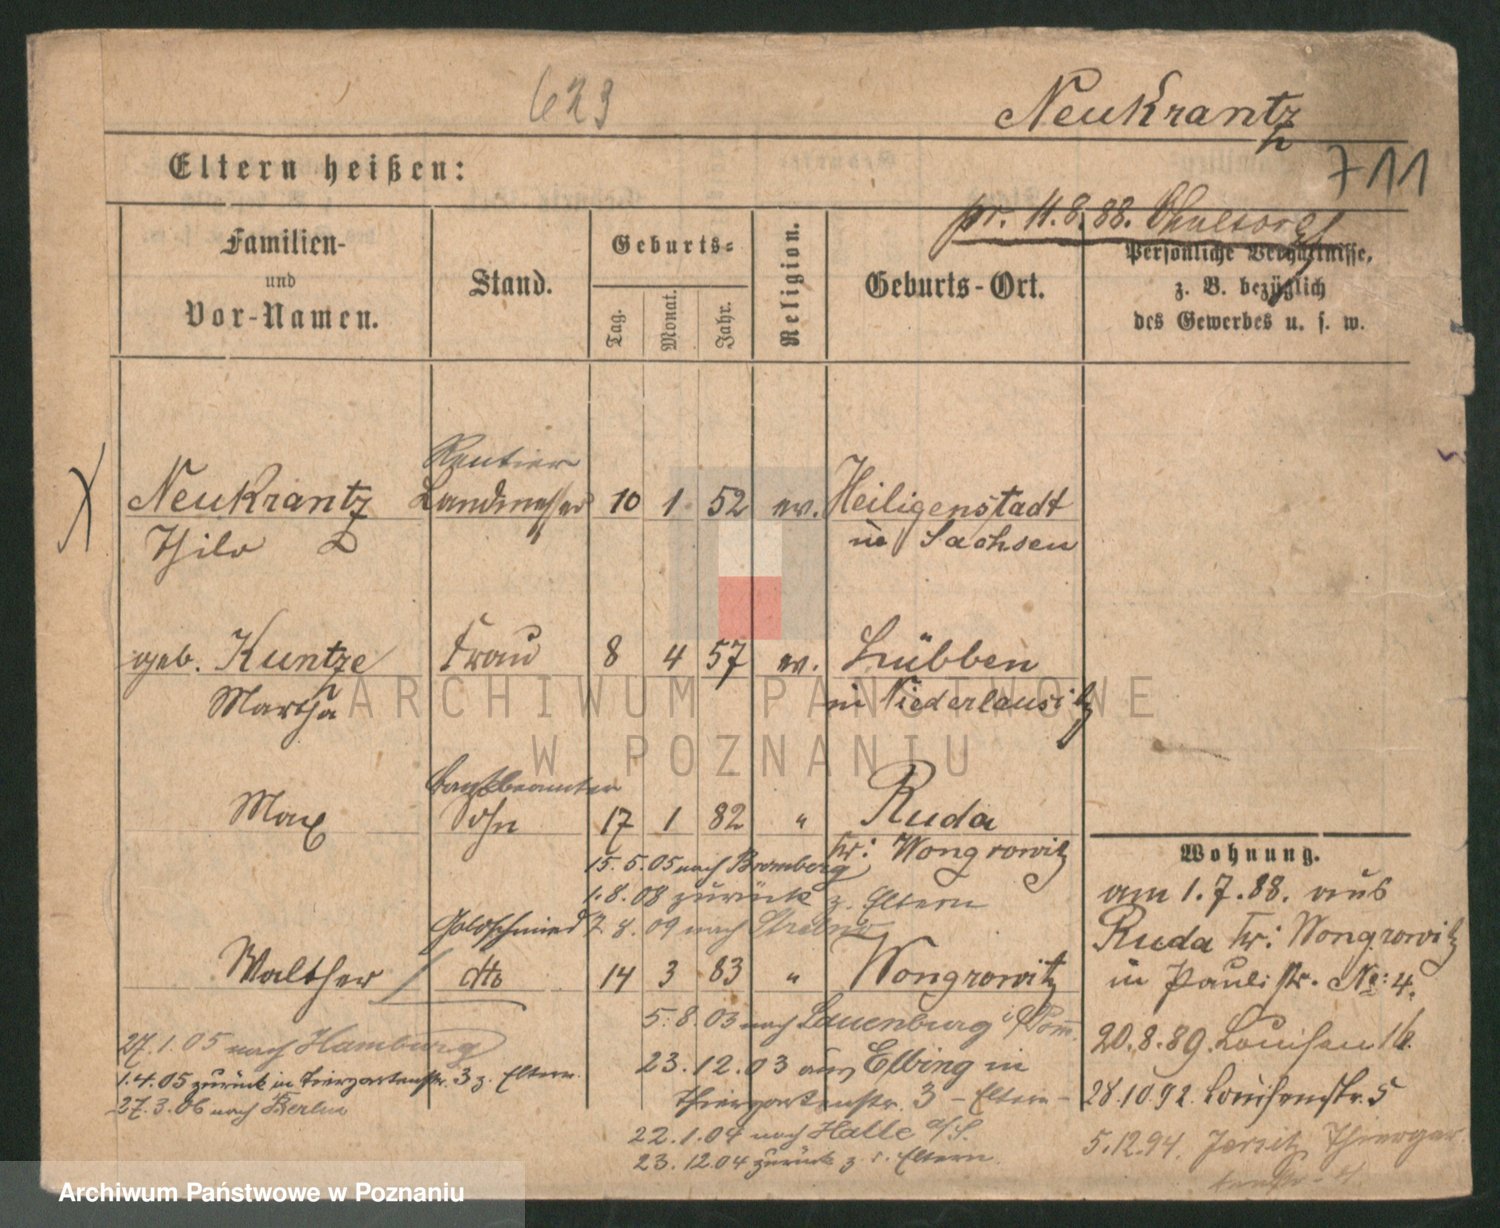 623
Neukrantz
711
Eltern heißen:
pr. 11.8.88.
Familien-
und
Vor-Namen.
Stand.
Geburts-
Tag.
Monat.
Jahr.
Religion.
Geburts-Ort.
Persönliche Verhältnisse,
z. B. bezüglich
des Gewerbes u. s. w.
Rentier
Neukrantz Landmesser 10 1 52 ev. Heiligenstadt
Thilo in Sachsen
geb. Kuntze Frau 8 4 57 ev. Lübben
Martha in Niederlausitz
ARCHIWUM PAŃSTWOWE
W POZNANIU
Bankbeamter
Max Sohn 17 1 82 " Ruda
Kr: Wongrowitz
15.5.05 nach Bromberg
1.8.08 zurück z. Eltern
2 8.09 nach Strelno
Goldschmied
Walther dto 14 3 83 " Wongrowitz
5.8.03 nach Lauenburg i/Pom.
23.12.03 aus Elbing in
Thiergartenstr. 3 - Eltern -
22.1.04 nach Halle a/S.
23.12.04 zurück z. s. Eltern
27.1.05 nach Hamburg
1.4.05 zurück in Tiergartenstr. 3 z. Eltern
27.3.06 nach Berlin
Wohnung.
am 1.7.88. aus
Ruda Kr: Wongrowitz
in Paulistr. No: 4.
20.8.89. Louisen
28.10.92. Louisenstr. 5
5.12.94. Jersitz, Thiergar
Archiwum Państwowe w Poznaniu